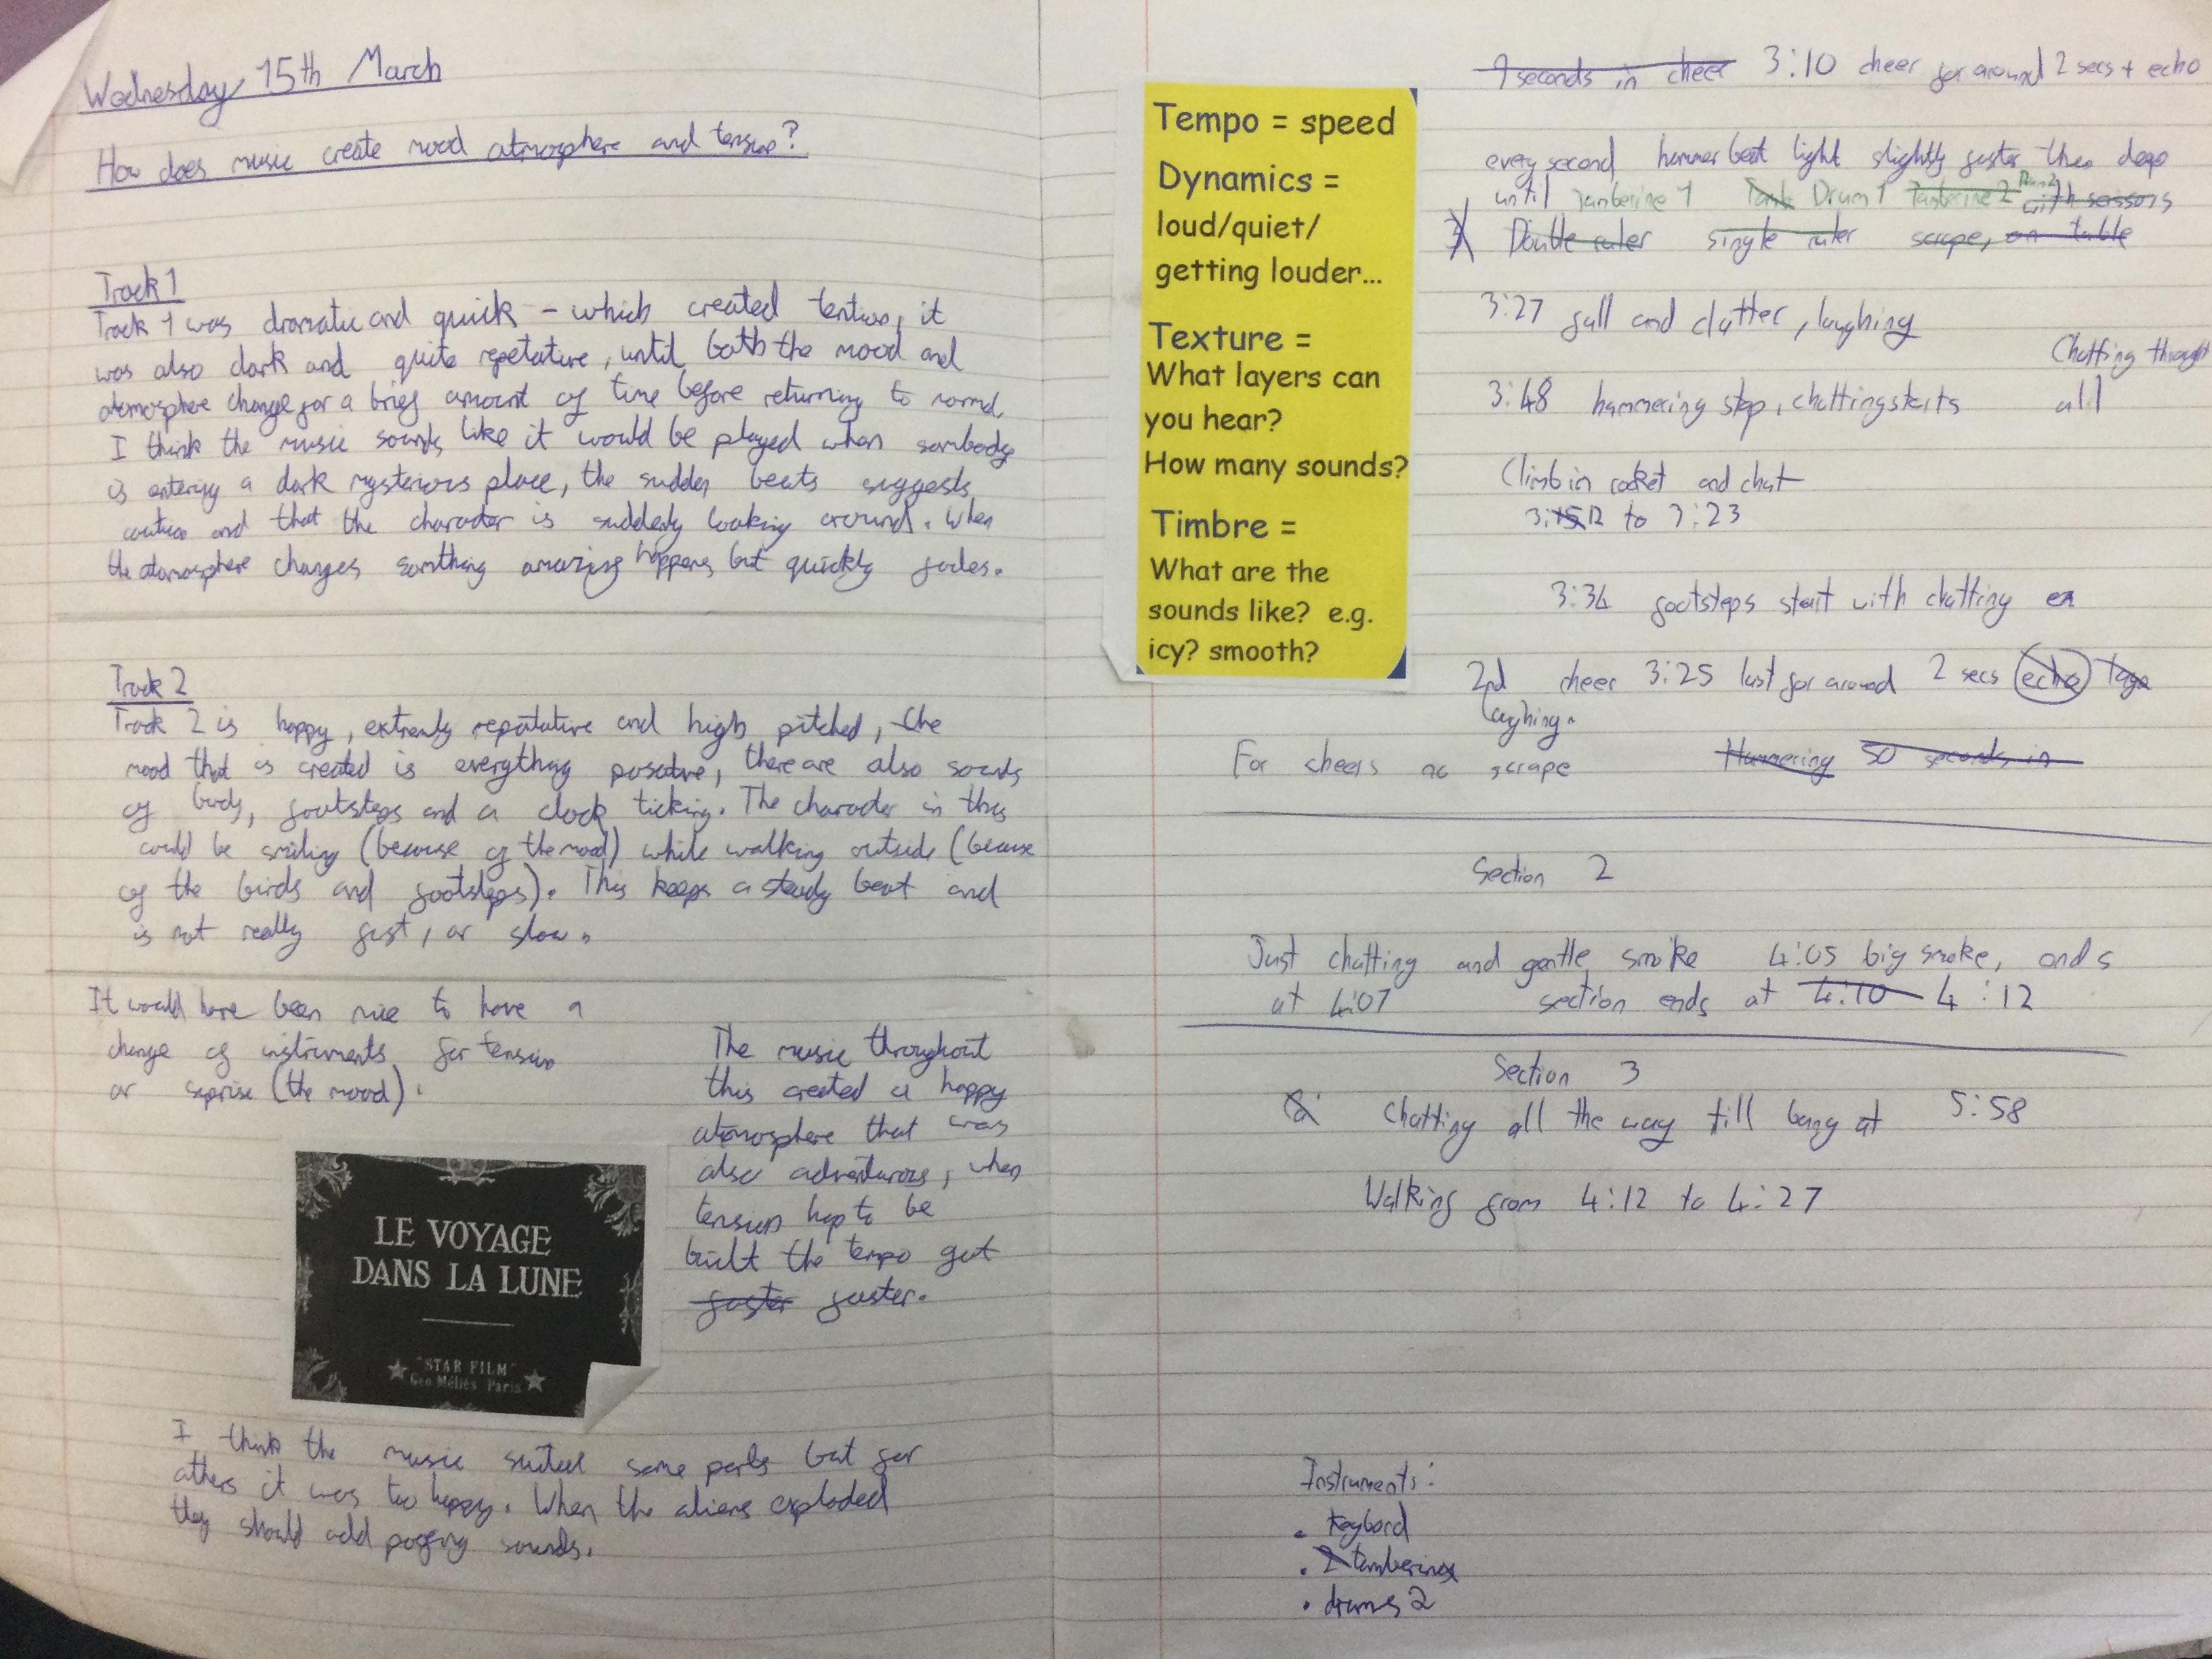 Wednesday 15th March
How does music create mood atmosphere and tension?
Track 1
Track 1 was dramatic and quick - which created tention, it
was also dark and quite repetative, until both the mood and
atomosphere change for a brief amount of time before returning to normal.
I think the music sounds like it would be played when sombody
is entering a dark mysterious place, the sudden beats suggests
caution and that the character is suddenly looking around. When
the atomosphere changes somthing amazing happens but quickly fades.
Track 2
Track 2 is happy, extremly repatative and high pitched, the
mood that is created is everything posative, there are also sounds
of birds, footsteps and a clock ticking. The character in this
could be smiling (because of the mood) while walking outside (because
of the birds and footsteps). This keeps a steady beat and
is not really fast, or slow.
It would have been nice to have a
change of instruments for tension
or suprise (the mood).
The music throughout
this created a happy
atomosphere that was
also adventurous, when
tension hap to be
built the tempo got
faster faster.
LE VOYAGE
DANS LA LUNE
"STAR FILM"
Geo Méliès Paris
I think the music suited some parts but for
others it was too happy. When the aliens exploded
they should add sounds.
Tempo = speed
Dynamics =
loud/quiet/
getting louder...
Texture =
What layers can
you hear?
How many sounds?
Timbre =
What are the
sounds like? e.g.
icy? smooth?
9 seconds in cheer 3:10 cheer for around 2 secs + echo
every second hammer beat light slightly faster then deep
until Tamberine 1 Drum 1 Tamberine 2 Drum 2 with scissors
Double ruler single ruler scrape, on table
3:27 fall and clatter, laughing
Chatting throught
3:48 hammering stop, chatting starts all
Climb in rocket and chat
to 3:23
3:34 footsteps start with chatting
2nd cheer 3:25 last for around 2 secs echo
laughing.
For cheers no scrape Hammering 50 seconds in
Section 2
Just chatting and gentle smoke 4:05 big smoke, ends
at 4:07 section ends at 4:10 4:12
Section 3
Chatting all the way till bang at 5:58
Walking from 4:12 to 4:27
Instruments:
• Keybord
• 2 tamberines
• drums 2